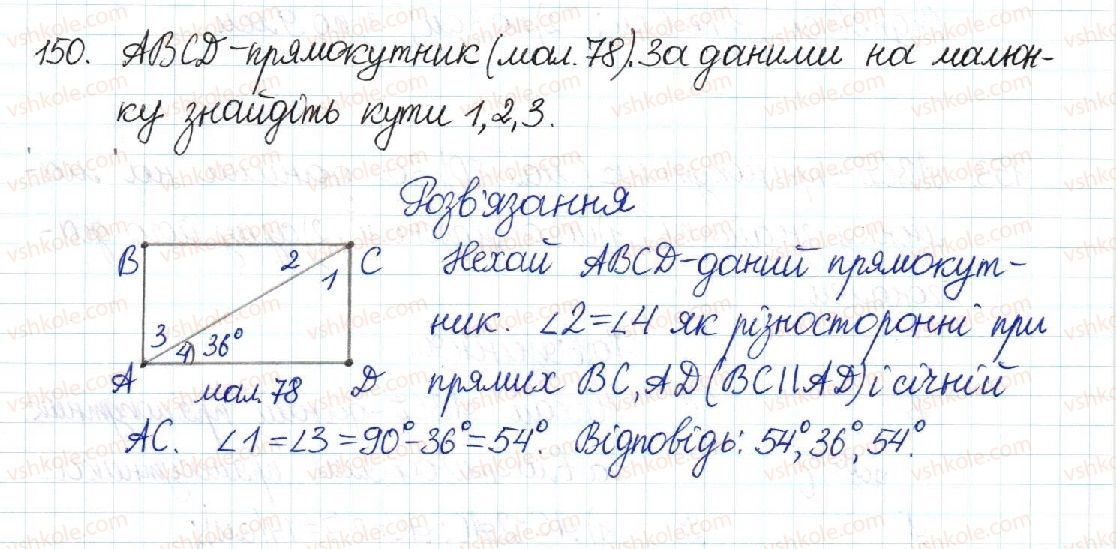 150. ABCD-прямокутник (мал. 78). За даними на малюн-
ку знайдіть кути 1, 2, 3.
Розв'язання
B 2 C
1
3
4 36°
A D
мал. 78
Нехай ABCD-даний прямокут-
ник. ∠2=∠4 як різносторонні при
прямих BC, AD (BC||AD) і січній
AC. ∠1=∠3=90°-36°=54°. Відповідь: 54°, 36°, 54°.
vshkole.com